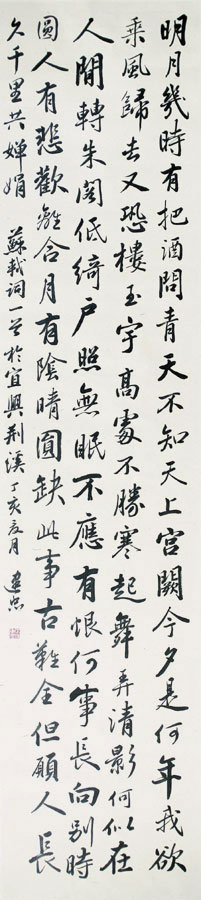 明月幾時有把酒問青天不知天上宮闕今夕是何年我欲
乘風歸去又恐樓玉宇高處不勝寒起舞弄清影何似在
人間轉朱閣低綺戶照無眠不應有恨何事長向別時
圓人有悲歡離合月有陰晴圓缺此事古難全但願人長
久千里共嬋娟 蘇軾詞一首於宜興荊溪丁亥月